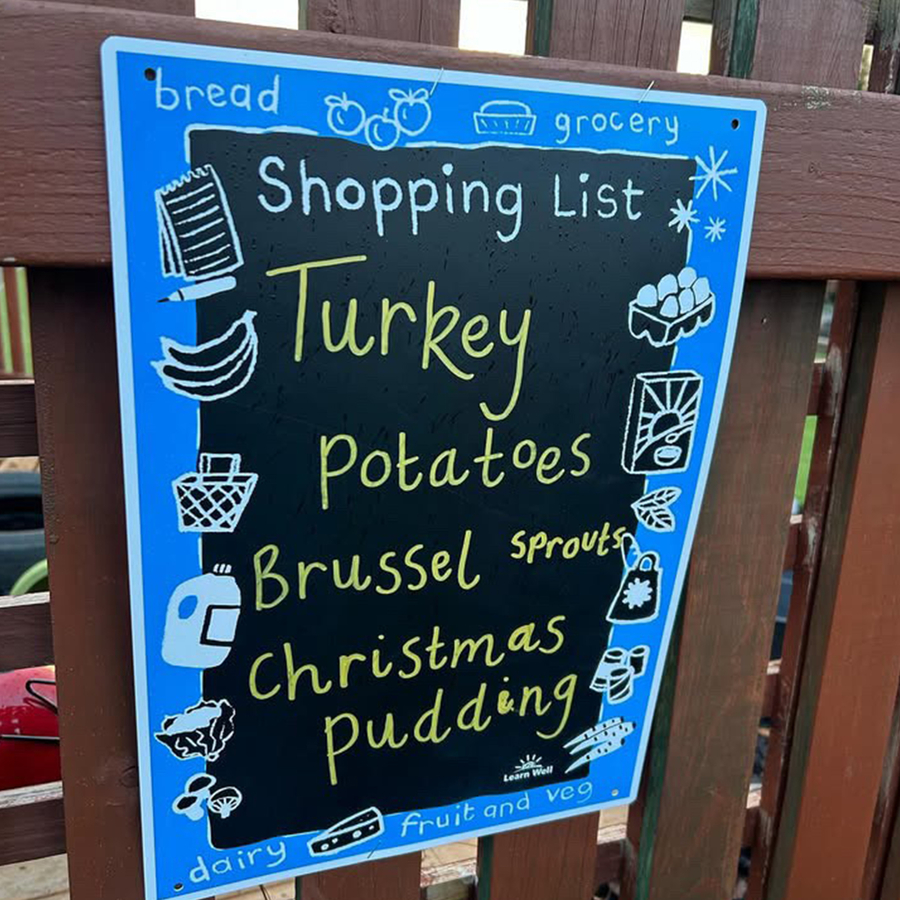 bread
grocery
Shopping List
Turkey
Potatoes
Brussel sprouts
Christmas
pudding
Learn Well
dairy
fruit and veg